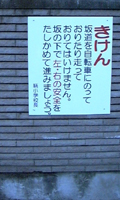 きけん
坂道を自転車にのって
おりたり走って
おりてはいけません。
坂の下で左・右の安全を
たしかめて進みましょう。